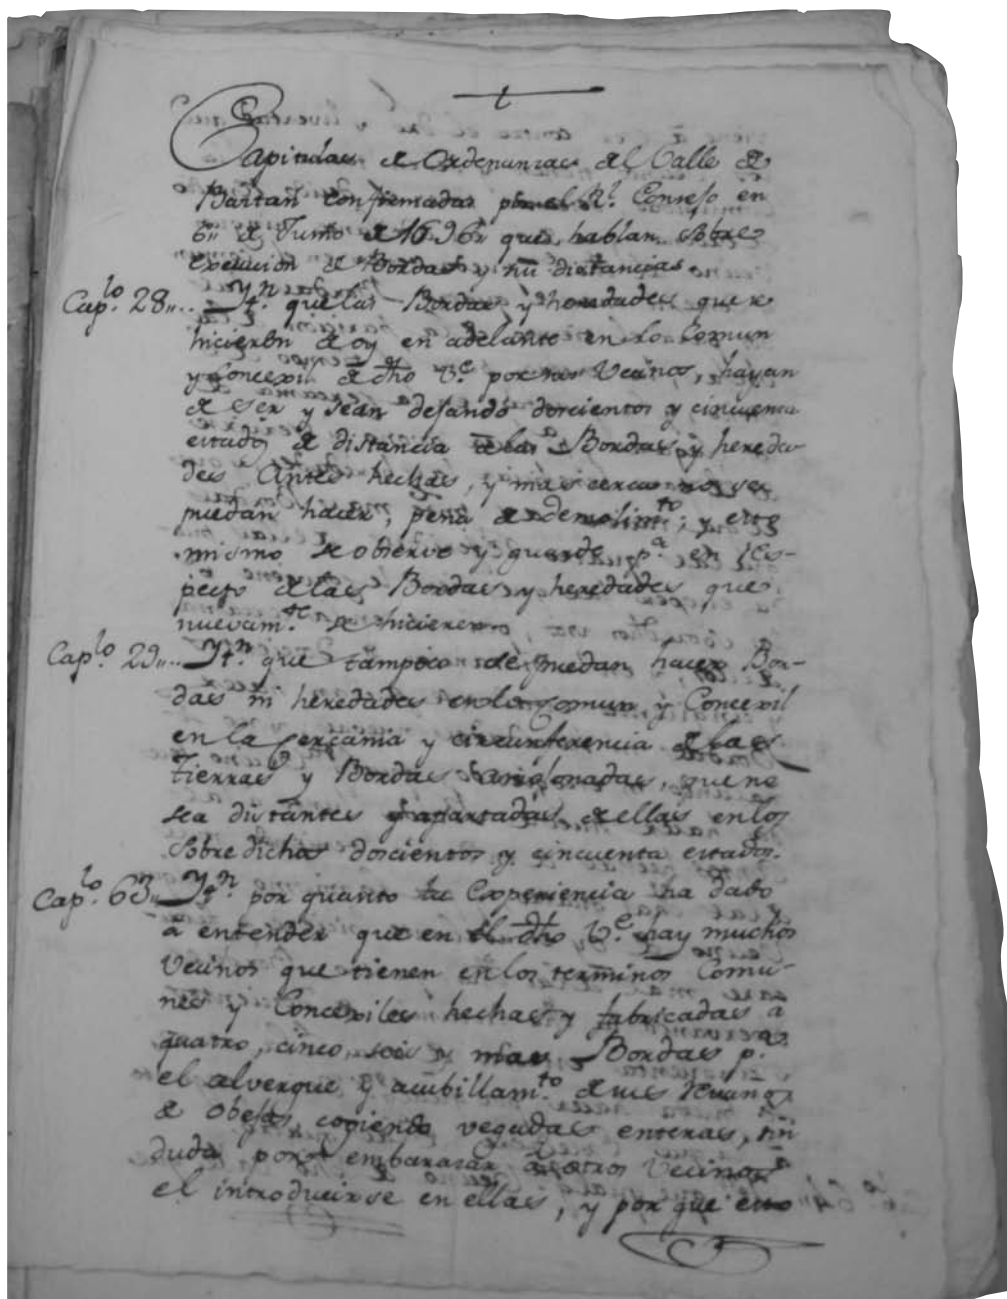 Capitulas de Ordenanzas del Valle de
Baztan confirmadas por el Rl. Consejo en
6,, de Junio de 1696,, que hablan sobre
execucion de Bordas y su distancias.
Caplo. 28,,... Ytn. que las Bordas y heredades que se
hicieren de oy en adelante en lo Comun
y Concexil de dho Ve. por sus Vecinos, hayan
de ser y sean dejando doscientos y cincuenta
estados de distancia de las Bordas y hereda-
des antes hechas, y mas cerca no se
puedan hacer, pena de demolimto; y esto
mismo se observe y guarde pa. en res-
pecto de las Bordas y heredades que
nuevamte. se hicieren
Caplo. 29,,... Ytn. que tampoco se puedan hacer Bor-
das ni heredades en lo Comun y Concexil
en la cercania y circunferencia de las
tierras y Bordas amojonadas, que no
sea distantes y apartadas de ellas en los
sobre dichos doscientos y cincuenta estados.
Caplo. 63,, Ytn. por quanto la Experiencia ha dado
a entender que en el dho Ve. hay muchos
Vecinos que tienen en los terminos Comu-
nes y Concexiles hechas y fabricadas a
quatro, cinco, seis y mas Bordas pa.
el alvergue y acubillamto. de sus revaños
de obejas, cogiendo vegadas enteras, sin
duda por embarazar a otros Vecinos
el introducirse en ellas, y por que esto